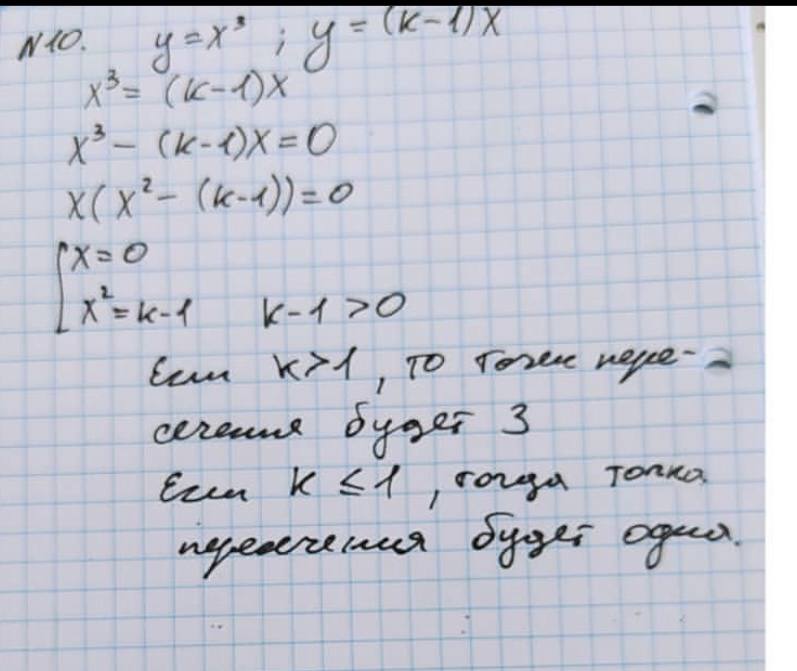 N10. y = x³ ; y = (k-1)x
x³ = (k-1)x
x³ - (k-1)x = 0
x(x² - (k-1)) = 0
[x = 0
x² = k-1 k-1 > 0
Если k > 1, то точек пере-
сечения будет 3
Если k ≤ 1, тогда точка
пересечения будет одна.